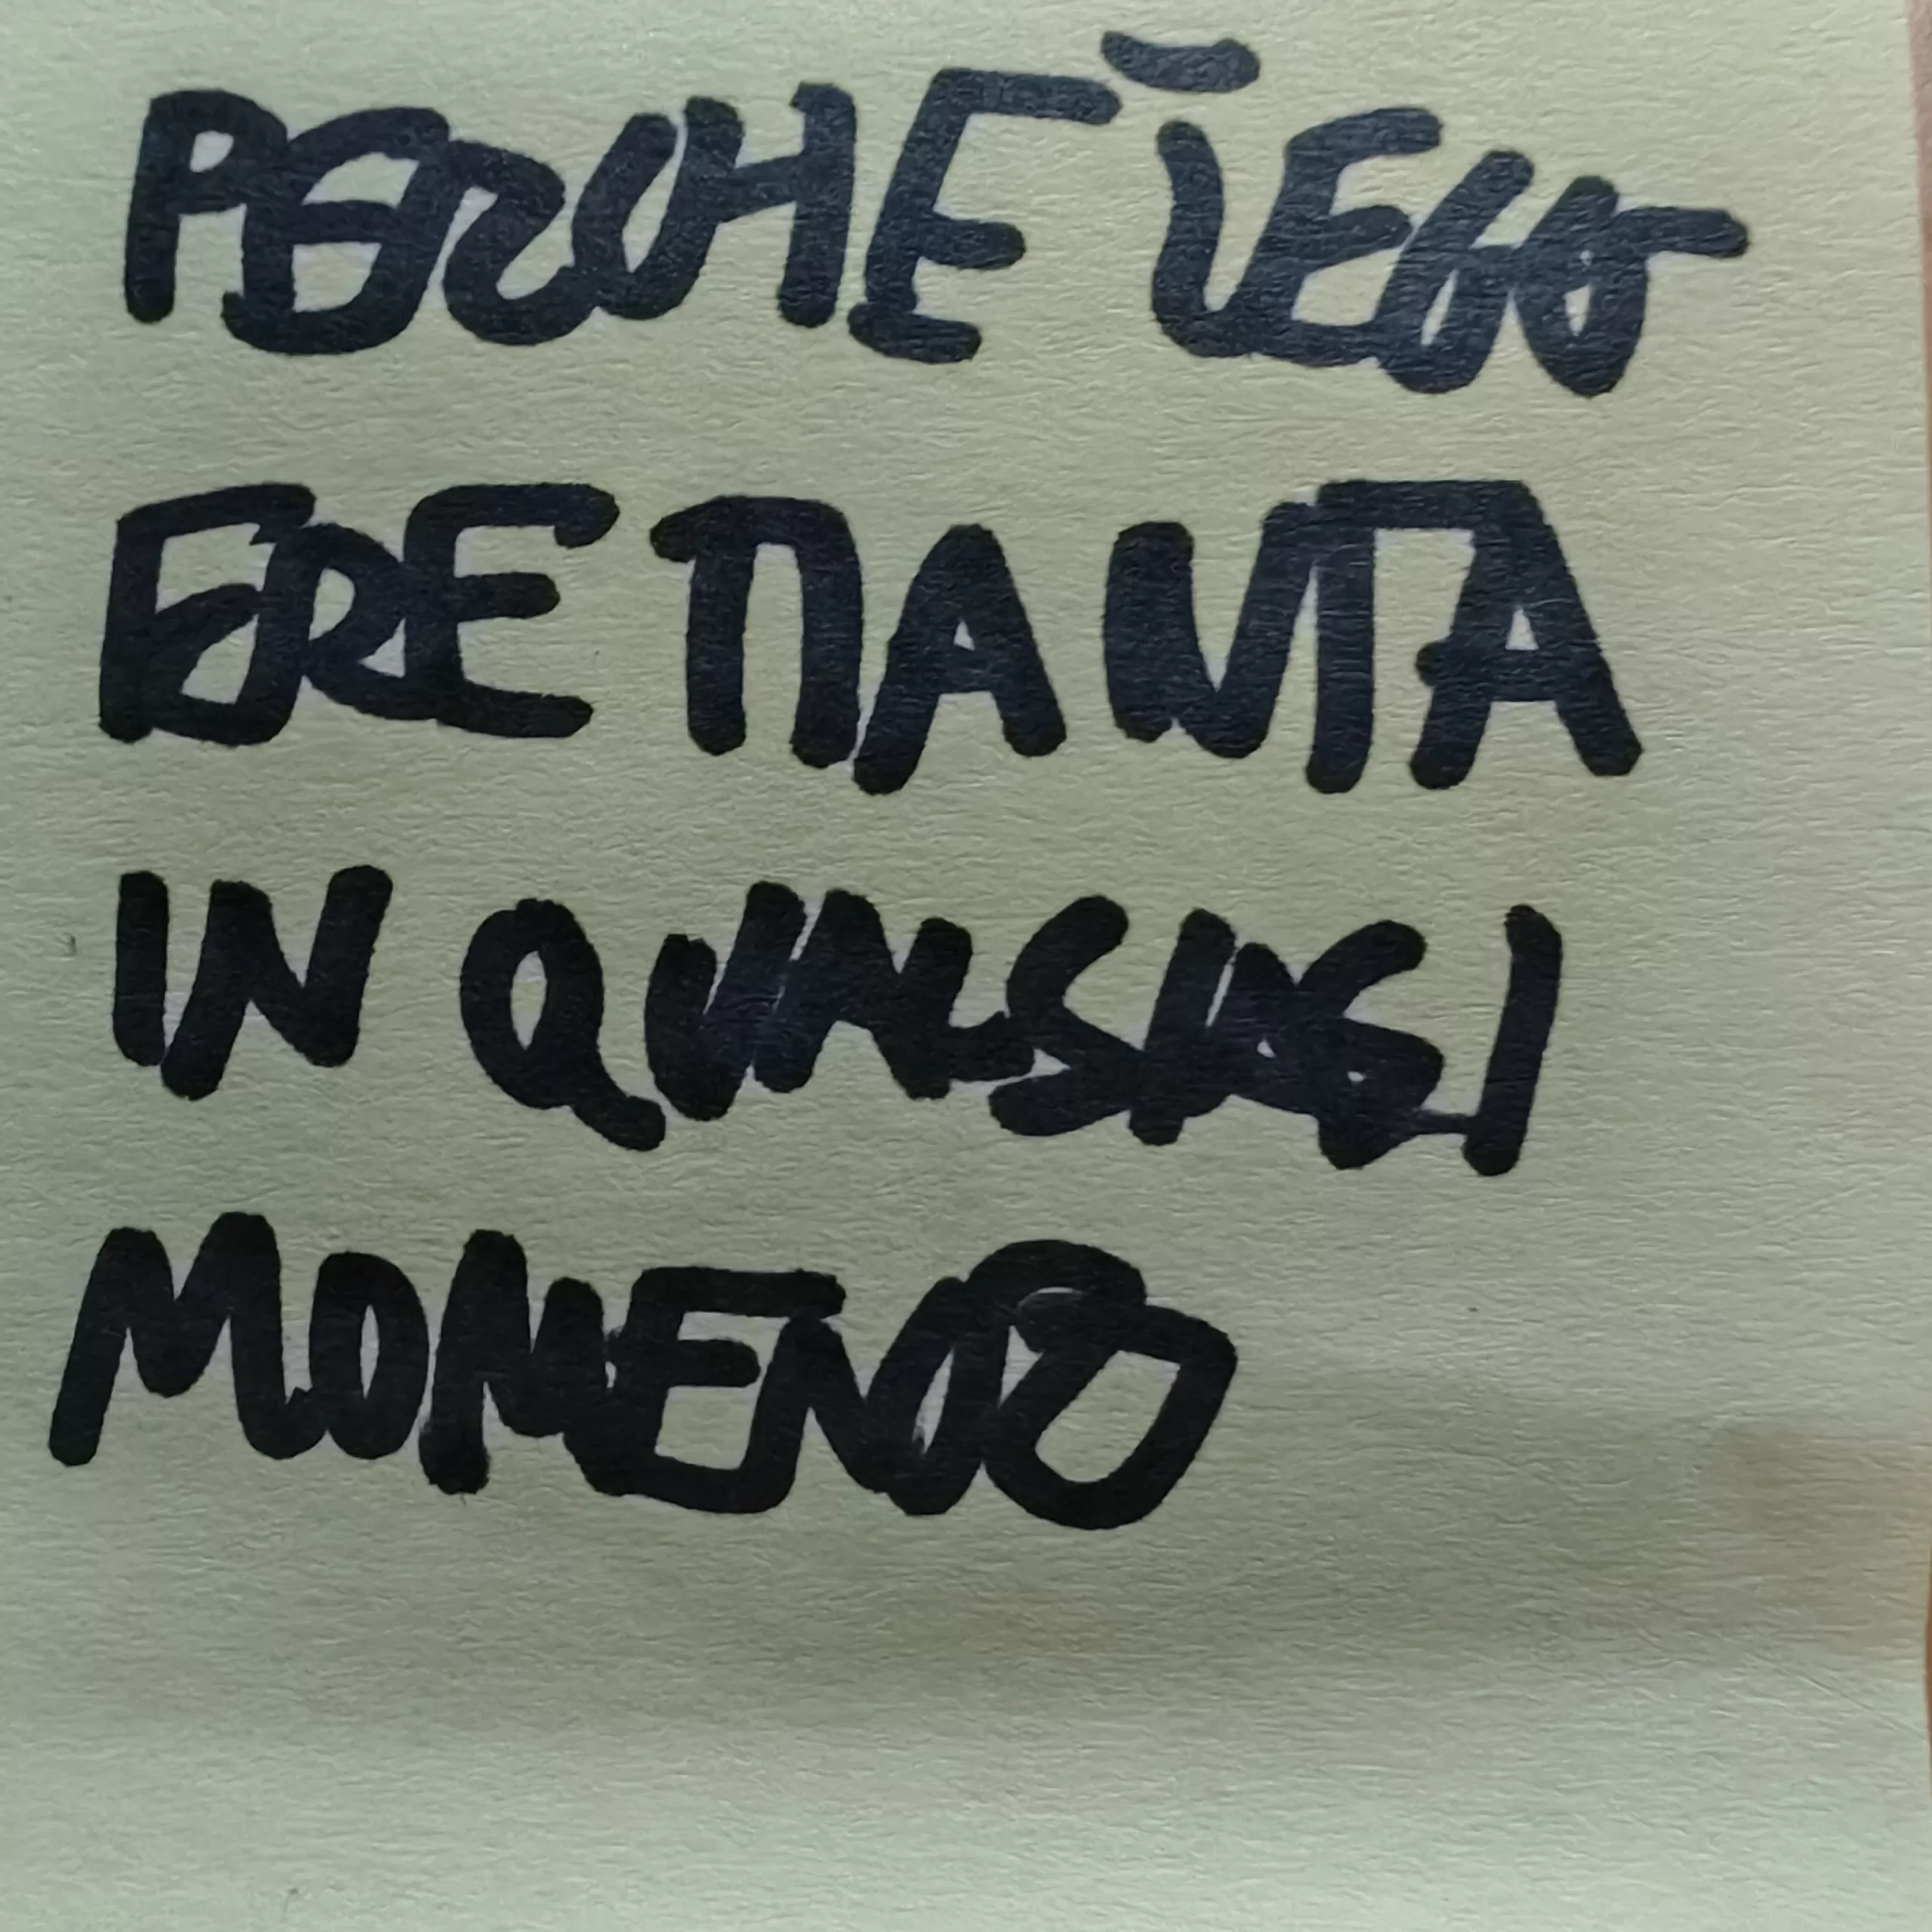 PERCHÉ LEGG-
ERE TI AIUTA
IN QUALSIASI
MOMENTO